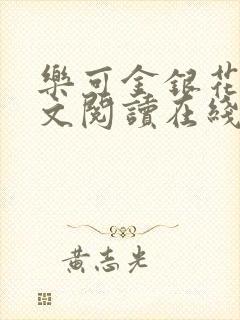 樂可金銀花
文閱讀在綫
黃志光